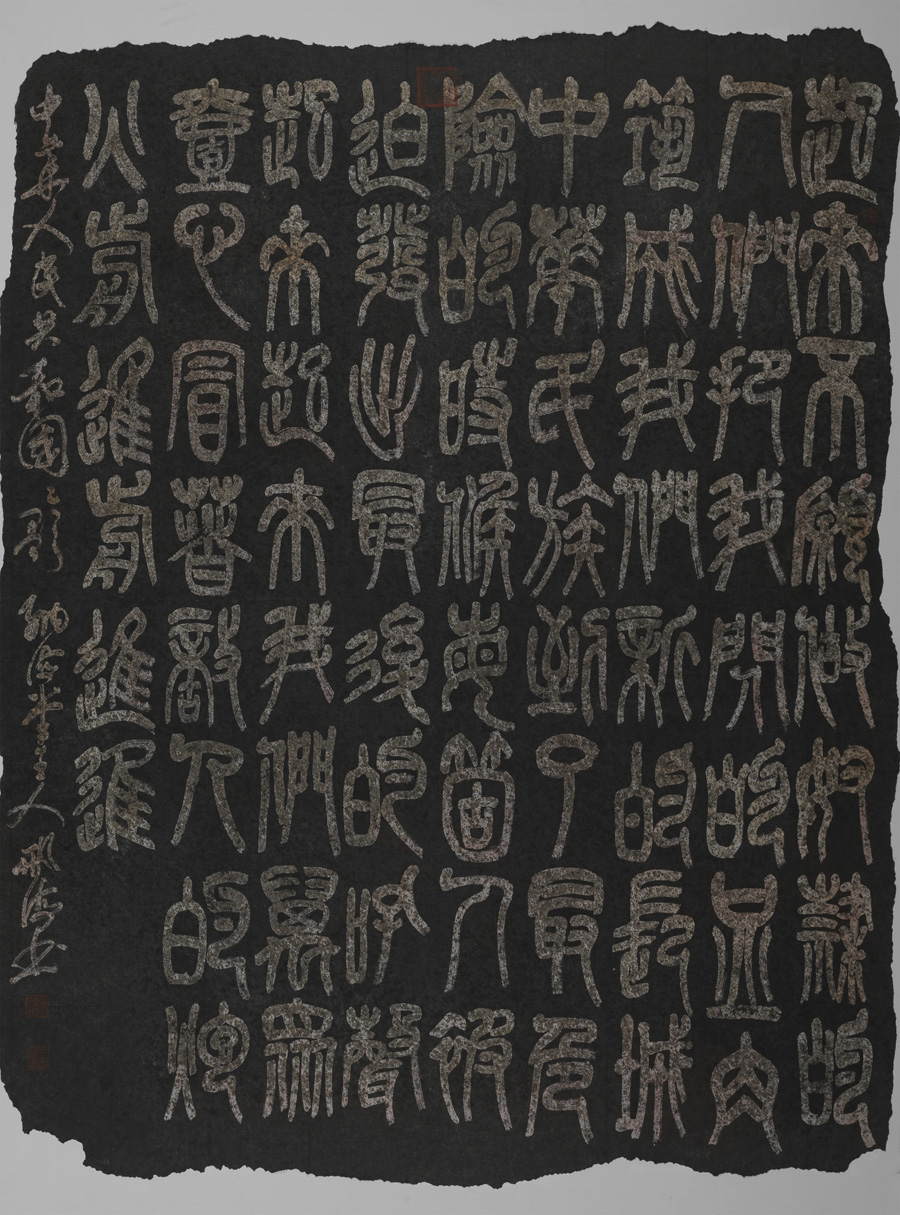 起來不願做奴隸的
人們把我們的血肉
筑成我們新的長城
中華民族到了最危
險的時候每箇人被
迫發出最後的吼聲
起來起來我們萬眾
壹心冒著敵人的炮
火前進前進進
中華人民共和國々歌 納海堂主人